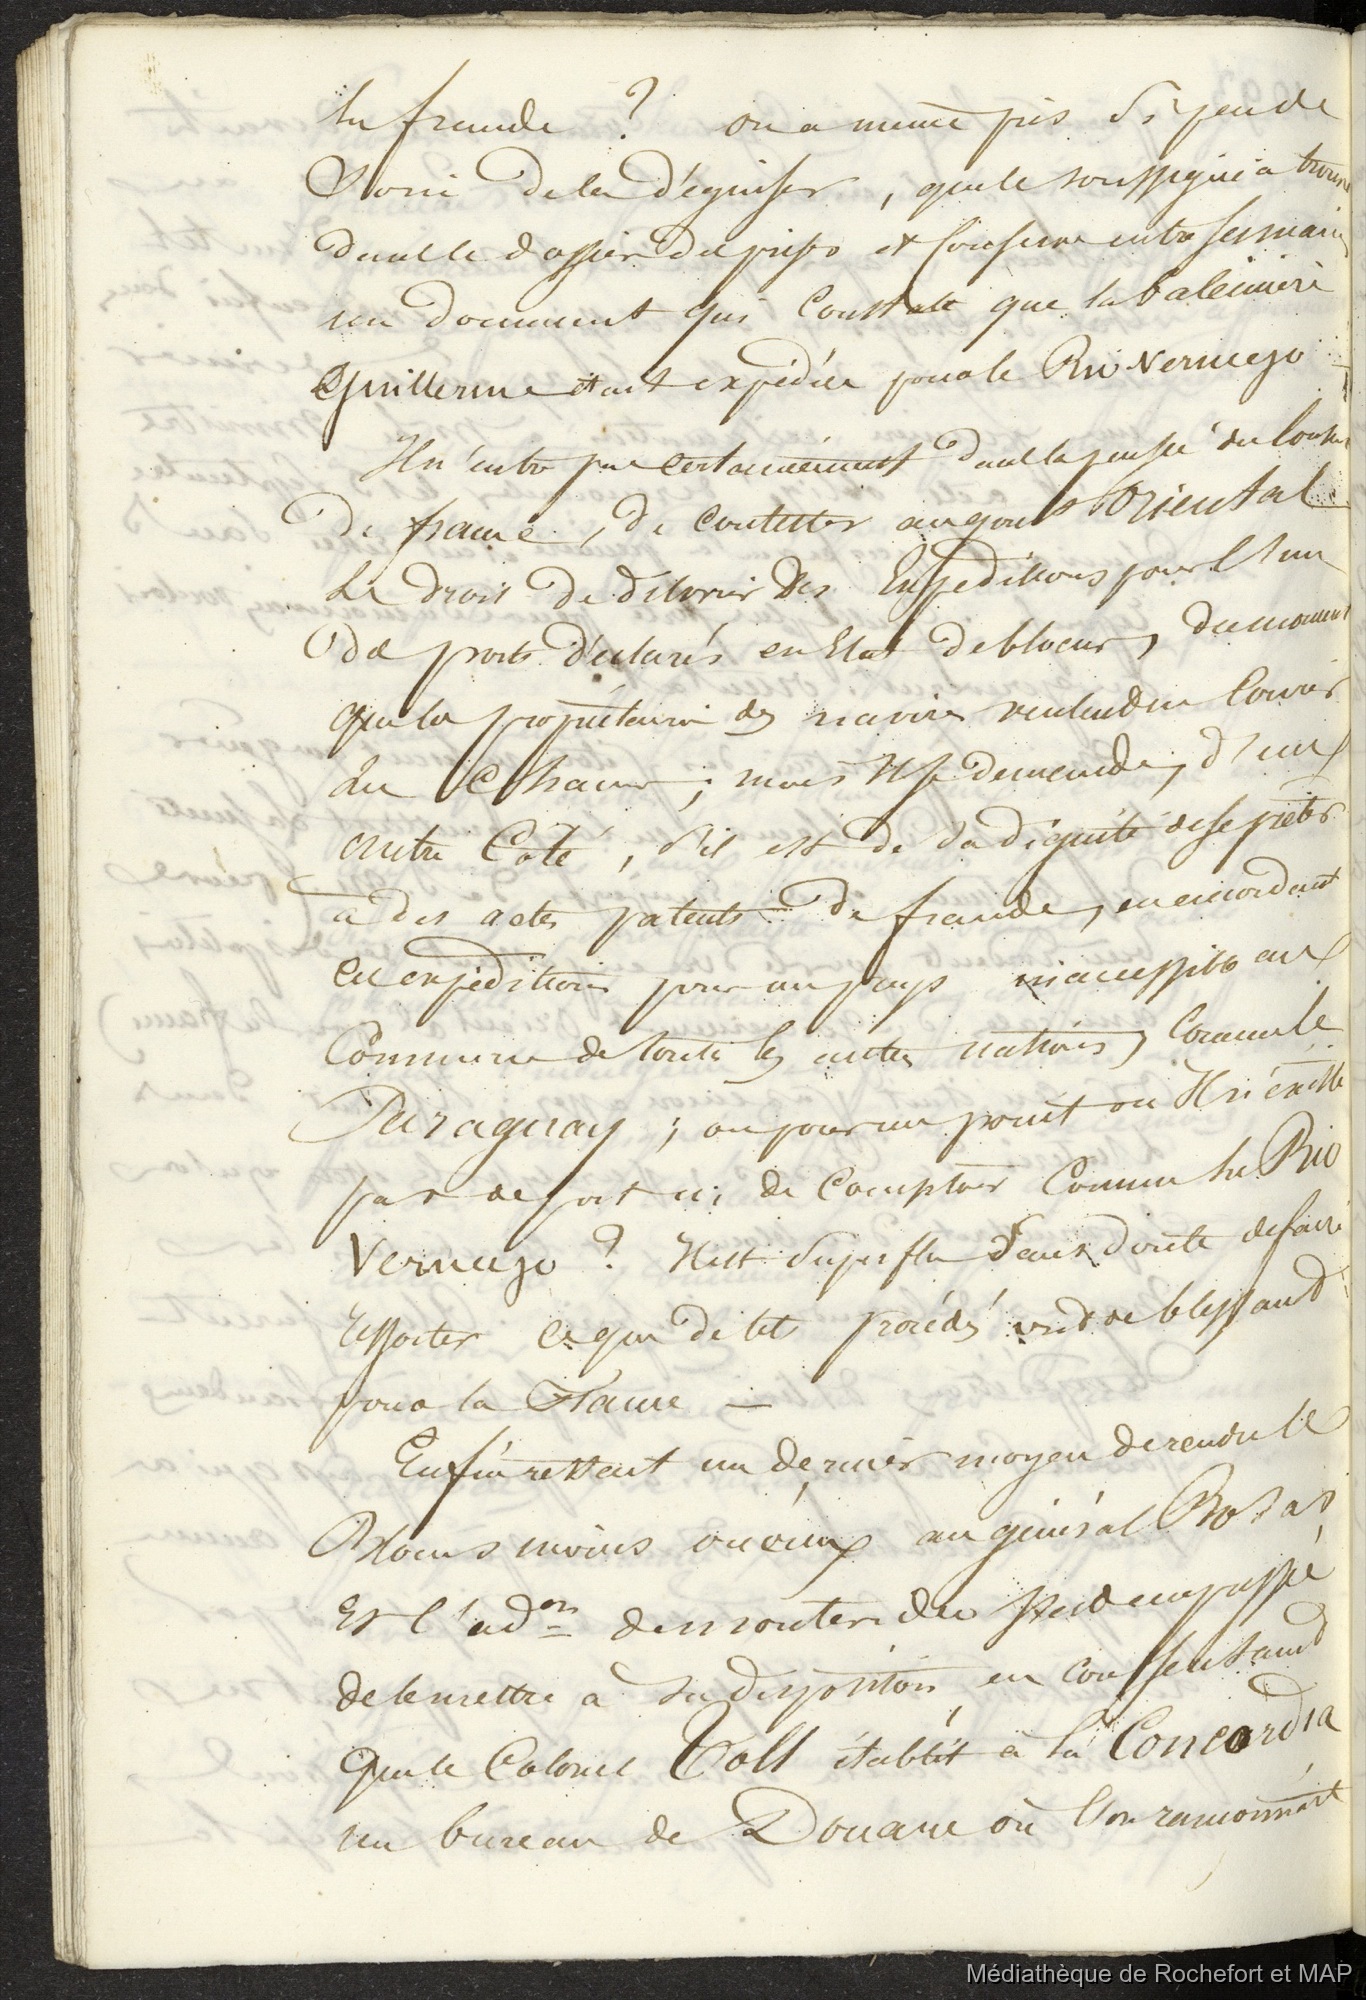 la fraude ? on a même pris si peu de
Soin de la déguiser, que le soussigné a trouvé
dans le dossier des prises et conserve entre ses mains
un document qui constate que la baleinière
Guillerme était expédiée pour le Rio Vermejo
Il n'entre pas certainement dans la pensée du Consul
de france, de contester au gouvt Oriental
le droit de délivrer des Expeditions pour l'un
des ports déclarés en Etat de blocus, du moment
que les propriétaires des navires veulent en Courir
la Chance ; mais Il se demande, d'un
autre Coté, s'il est de sa dignité de se prêter
à des actes patents de fraude, en accordant
ces expéditions pour un pays inaccessible au
Commerce de toutes les autres nations, Comme le
Paraguay ; ou pour un point ou Il n'existe
pas de port ni de Comptoir Comme le Rio
Vermejo ? Il est Superflu Sans doute de faire
ressortir ce que de tels procédés ont de blessant
pour la France —
Enfin restait un dernier moyen de rendre le
Blocus moins onéreux au général Rosas
Et l'adon de montevideo s'est empressé
de le mettre à sa disposition, en consentant
que le Colonel Toll établit à la Concordia
un bureau de Douane où l'on rançonnait
Médiathèque de Rochefort et MAP